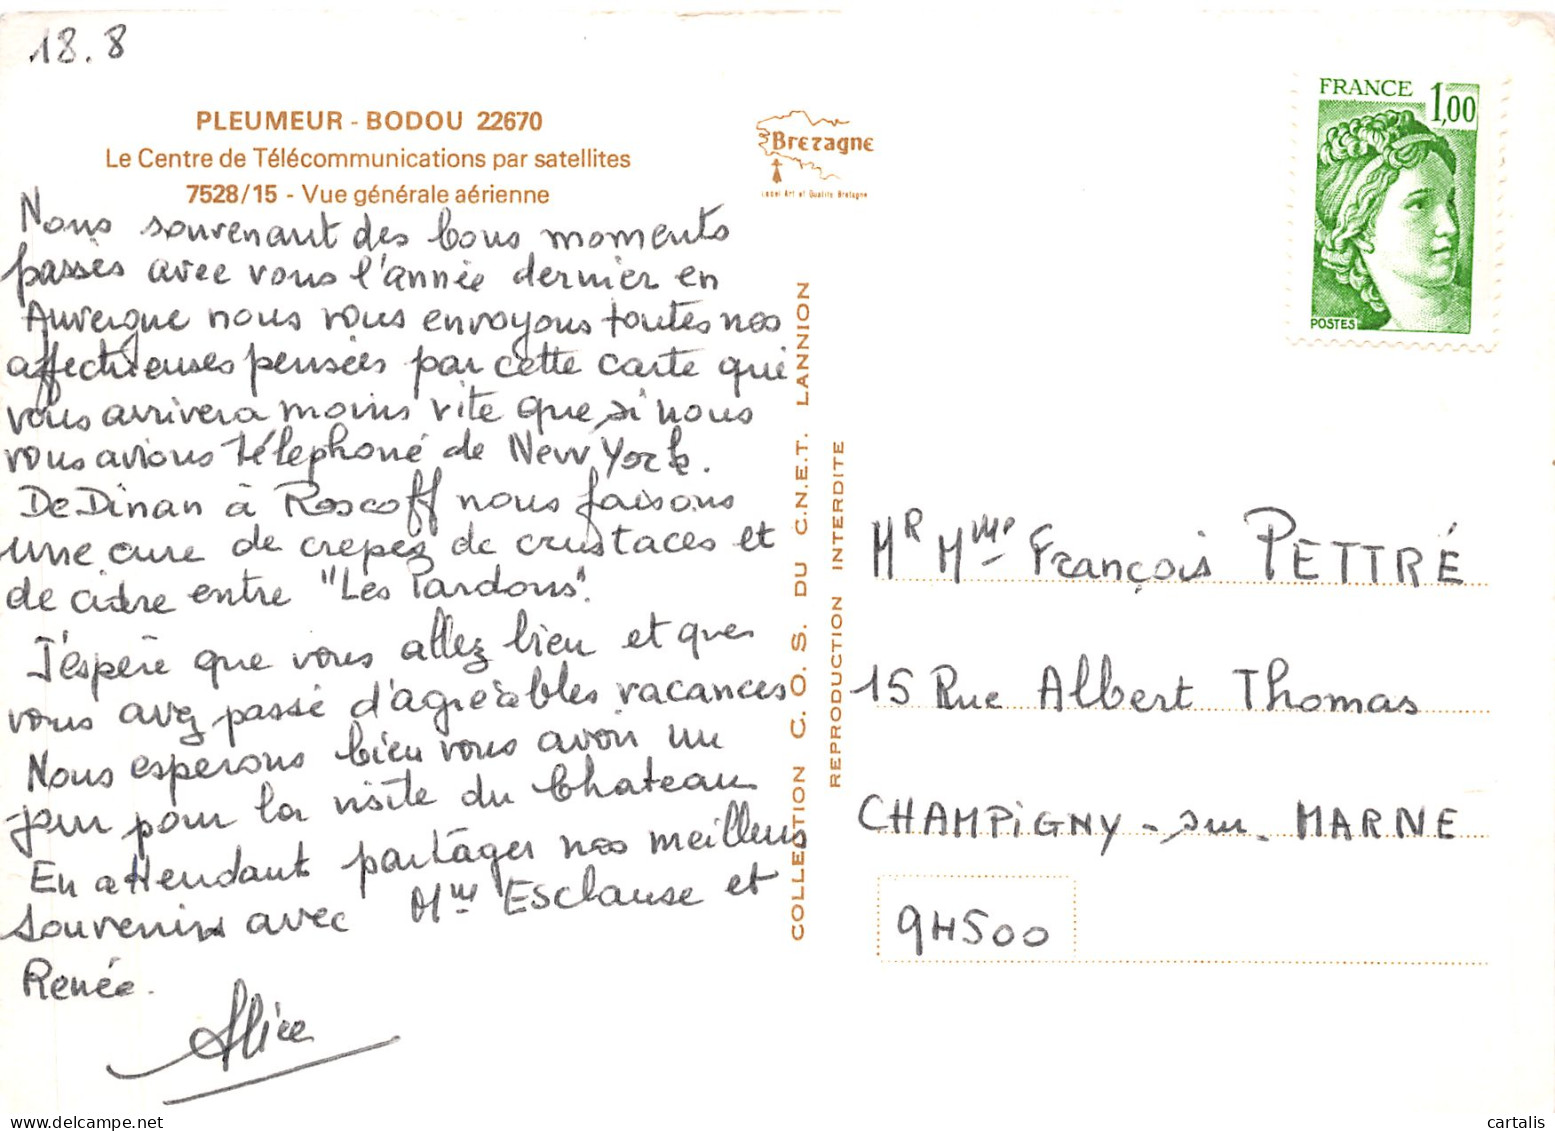 18.8
PLEUMEUR - BODOU 22670
Le Centre de Télécommunications par satellites
7528/15 - Vue générale aérienne
Bretagne
Label Art et Qualité Bretagne
FRANCE 1,00
POSTES
Nous souvenant des bons moments
passés avec vous l'année dernier en
Auvergne nous vous envoyons toutes nos
affectueuses pensées par cette carte qui
vous arrivera moins vite que si nous
vous avions téléphoné de New York.
De Dinan à Roscoff nous faisons
une cure de crepes de crustaces et
de cidre entre "Les Pardons".
J'espère que vous allez bien et que
vous avez passé d'agréables vacances
Nous esperons bien vous avoir un
jour pour la visite du Chateau
En attendant partager nos meilleurs
souvenirs avec Mme Esclause et
Renée.
Alice
COLLECTION C. O. S. DU C.N.E.T. LANNION
REPRODUCTION INTERDITE
Mr Mme François PETTRÉ
15 Rue Albert Thomas
CHAMPIGNY-sur-MARNE
94500
cartalis